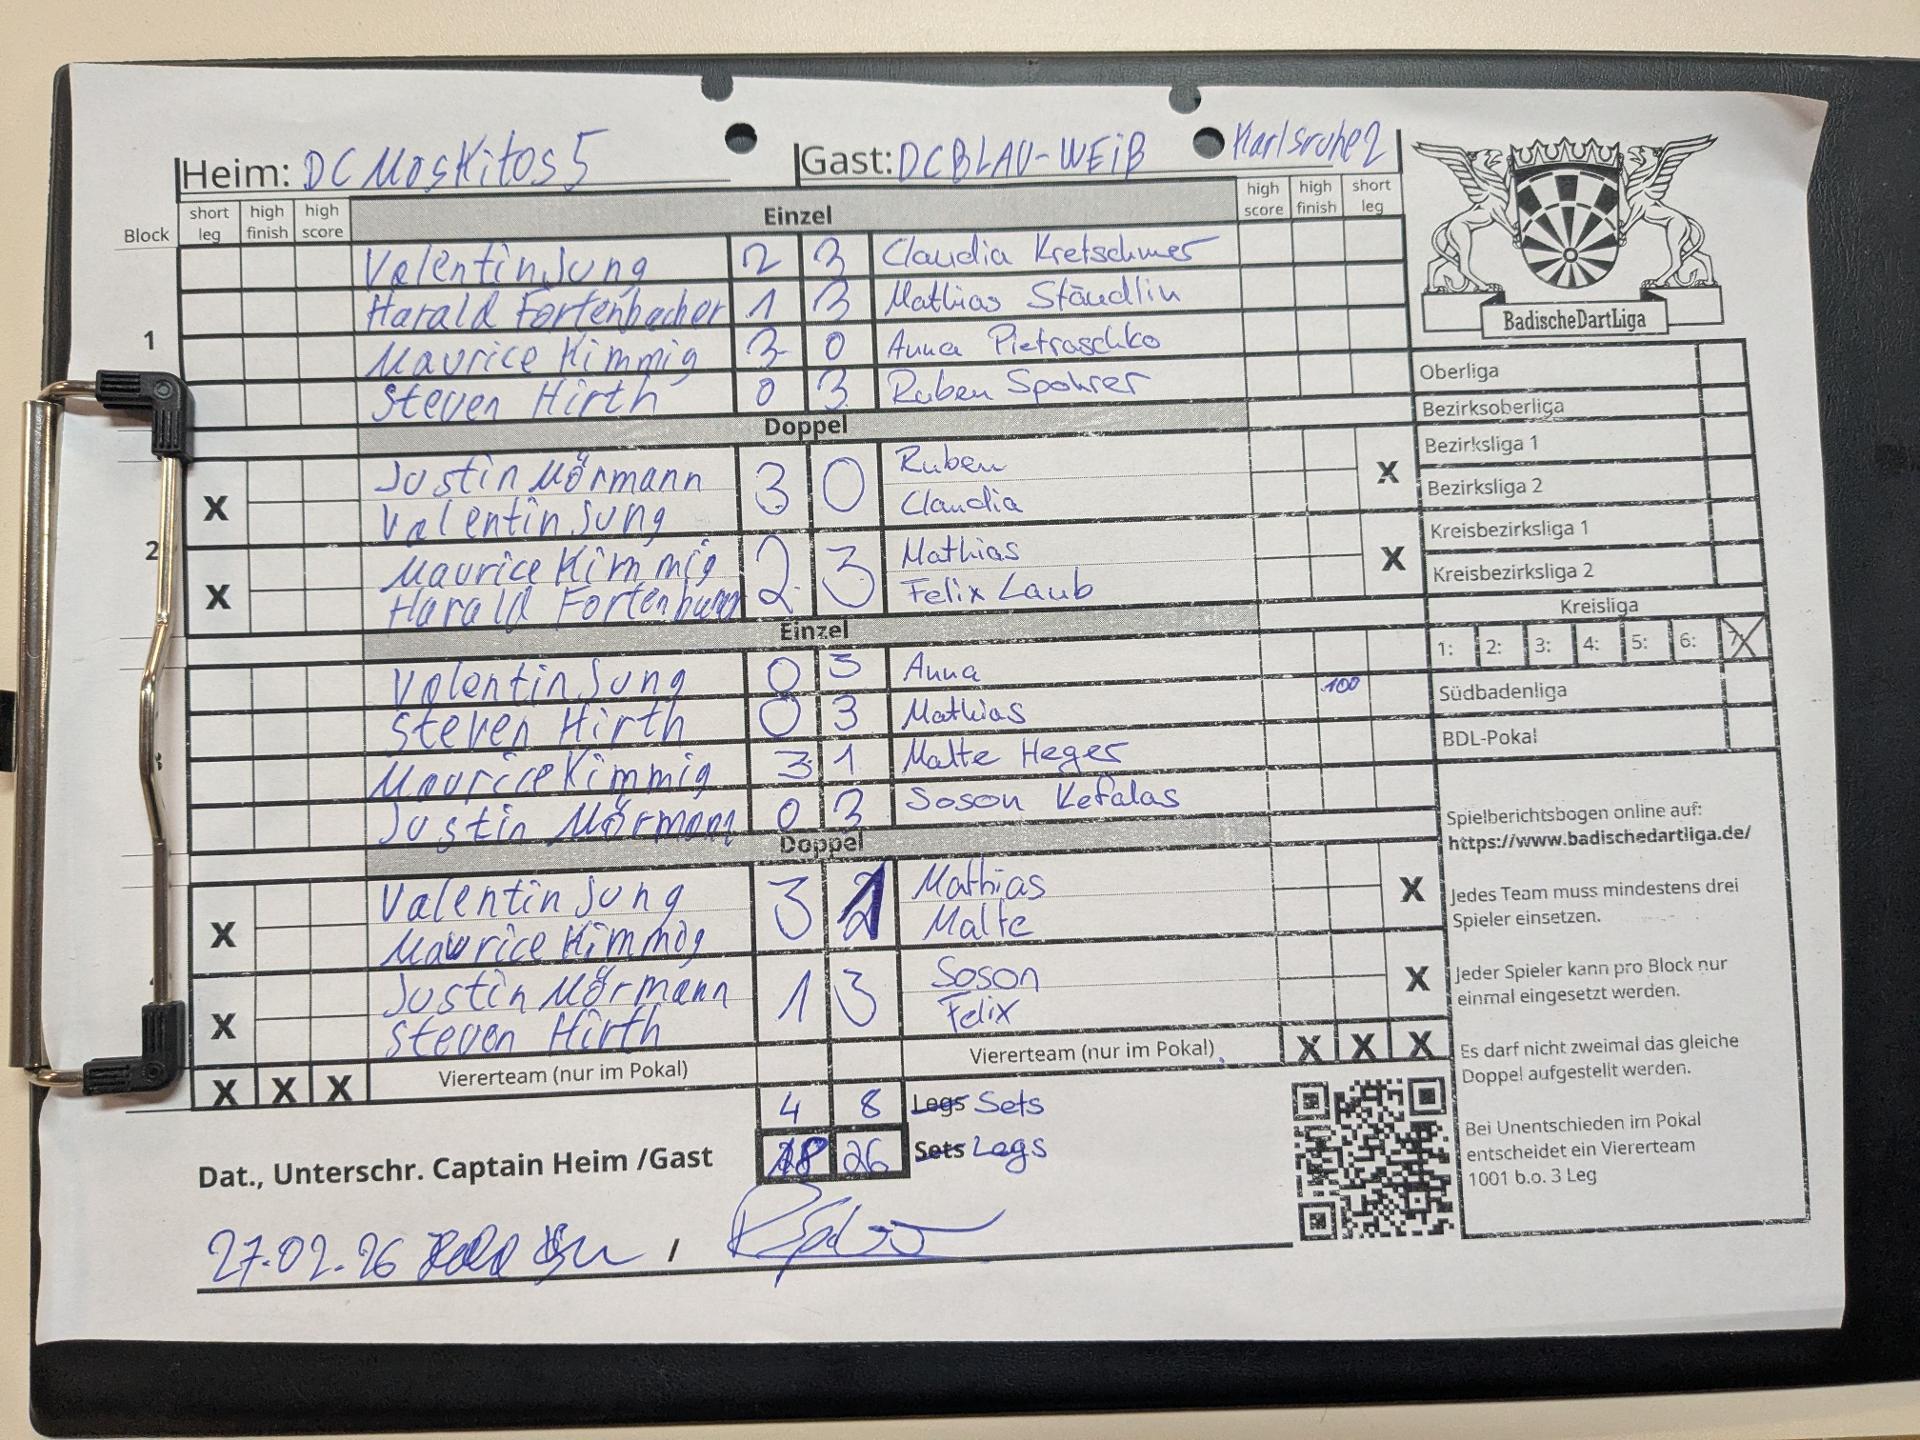 Heim: DC Moskitos 5 Gast: DC BLAU-WEIß Karlsruhe 2
Block short leg high finish high score Einzel high score high finish short leg
Valentin Jung 2 3 Claudia Kretschmer
Harald Fortenbacher 1 3 Mathias Stäudlin
1 Maurice Kimmig 3 0 Anna Pietraschko
Steven Hirth 0 3 Ruben Spohrer
Doppel
X Justin Mörmann 3 0 Ruben X
Valentin Jung Claudia
2
X Maurice Kimmig 2 3 Mathias X
Harald Felix Laub
Einzel
Valentin Jung 0 3 Anna
Steven Hirth 0 3 Mathias 100
Maurice Kimmig 3 1 Malte Heger
Justin Mörmann 0 3 Soson Kefalas
Doppel
X Valentin Jung 3 1 Mathias X
Maurice Kimmig Malte
X Justin Mörmann 1 3 Soson X
Steven Hirth Felix
X X X Viererteam (nur im Pokal) Viererteam (nur im Pokal) X X X
4 8 Legs Sets
18 26 Sets Legs
Dat., Unterschr. Captain Heim /Gast
27.02.26 /
BadischeDartLiga
Oberliga
Bezirksoberliga
Bezirksliga 1
Bezirksliga 2
Kreisbezirksliga 1
Kreisbezirksliga 2
Kreisliga
1: 2: 3: 4: 5: 6: 7:
Südbadenliga
BDL-Pokal
Spielberichtsbogen online auf:
https://www.badischedartliga.de/
Jedes Team muss mindestens drei
Spieler einsetzen.
Jeder Spieler kann pro Block nur
einmal eingesetzt werden.
Es darf nicht zweimal das gleiche
Doppel aufgestellt werden.
Bei Unentschieden im Pokal
entscheidet ein Viererteam
1001 b.o. 3 Leg